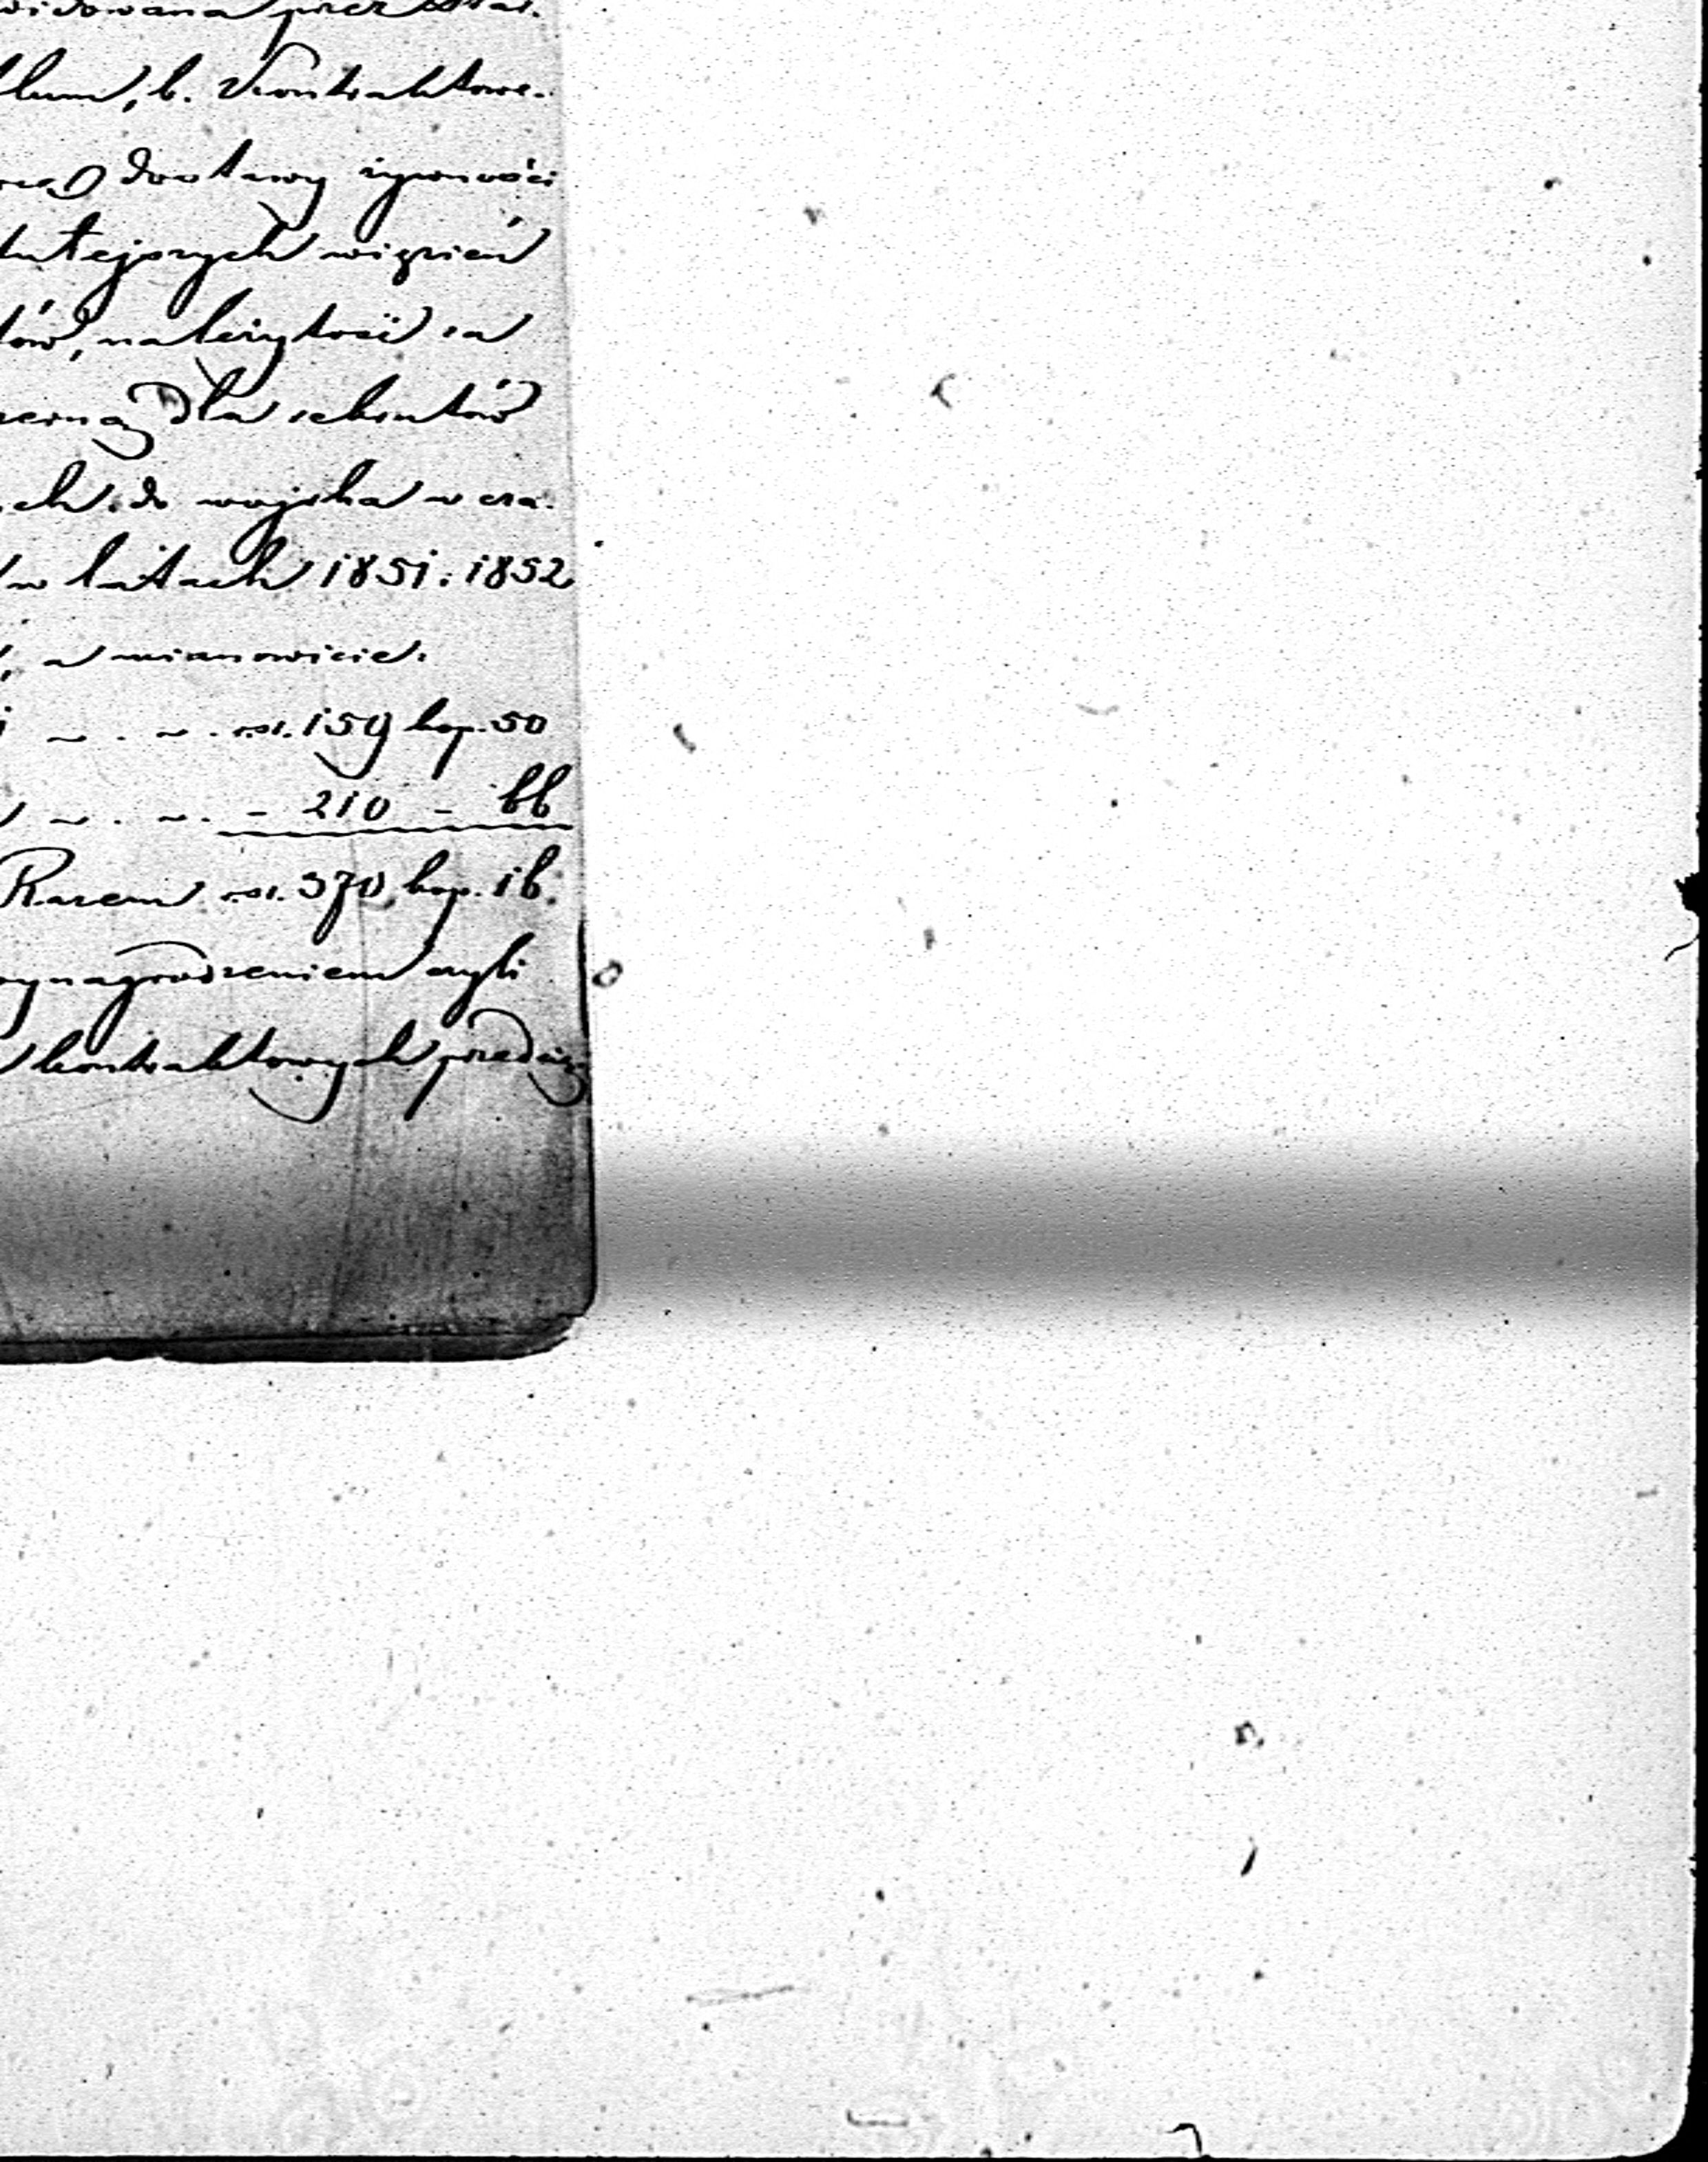 widowana przez Star.
blum, b. Kontrakto we-
dostawy żywności
tutejszych więzień
tów, należytość za
dla rekrutów
ch do wojska w cza-
w latach 1851. 1852
, a mianowicie.
rsr. 159 kop. 50
- 210 - 66
Razem rsr. 370 kop. 16.
wynagrodzeniem czyli
kontraktowych przedsię